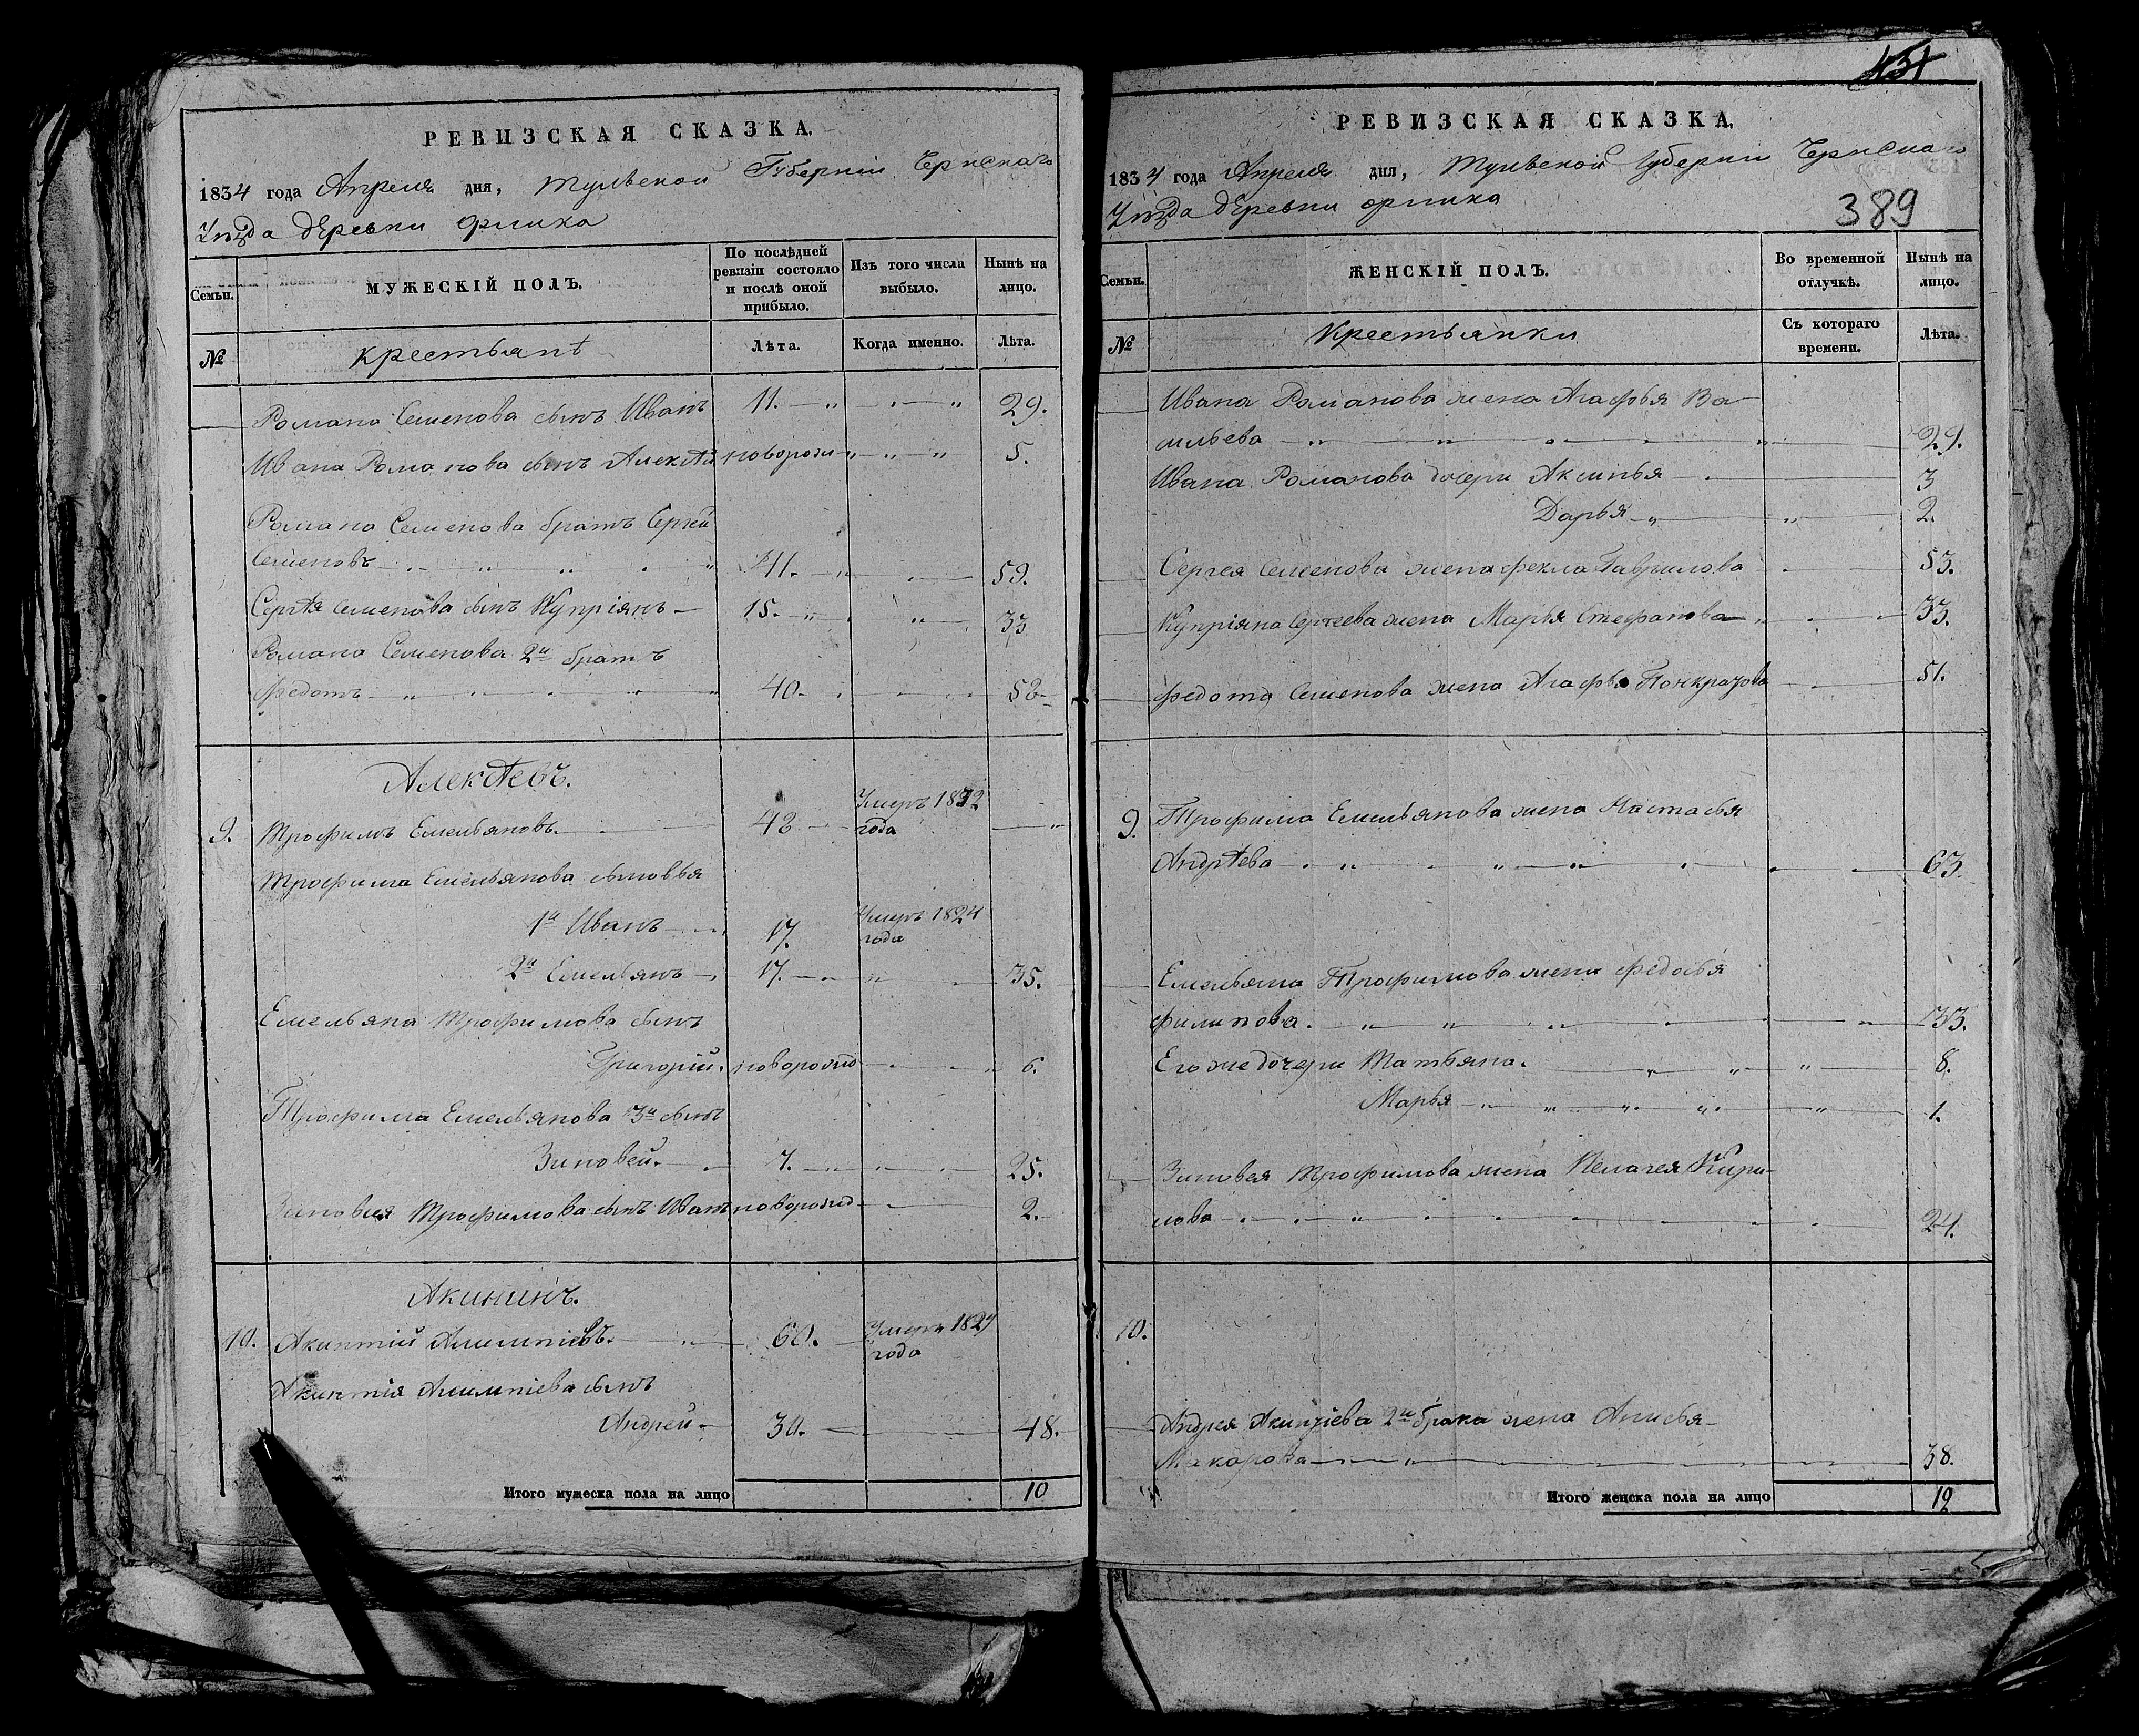 РЕВИЗСКАЯ СКАЗКА.
1834 года Апреля дня, Тульской Губерніи Чернскаго
Уѣзда деревни
МУЖЕСКІЙ ПОЛЪ.
По послѣдней ревизіи состояло и послѣ оной прибыло.
Изъ того числа выбыло.
Нынѣ на лицо.
Семьи.
№
крестьянѣ
Лѣта.
Когда именно.
Лѣта.
Романа Семенова сынъ Иванъ 11. 29.
Ивана Романова сынъ Алексѣй новорож 5.
Романа Семенова братъ Сергей
Семеновъ 41. 59.
Сергѣя Семенова сынъ Купріянъ 15. 33
Романа Семенова 2й братъ
Федотъ 40. 58
Алексѣевъ.
9. Трофимъ Емельяновъ 48 Умеръ 1832 года
Трофима Емельянова сыновья
1й Иванъ 17. Умеръ 1824 года
2й Емельянъ 17. 35.
Емельяна Трофимова сынъ
Григорій. новорожд 6.
Трофима Емельянова 3й сынъ
Зиновей. 7. 25.
Зиновея Трофимова сынъ Иванъ новорожд 2.
Акининъ.
10. Акинтій Алимпіевъ. 60. Умеръ 1827 года
Акинтія Алимпіева сынъ
Андрей 30. 48.
Итого мужеска пола на лицо 10
РЕВИЗСКАЯ СКАЗКА,
1834 года Апреля дня, Тульской Губерніи Чернскаго
Уѣзда деревни
389
ЖЕНСКІЙ ПОЛЪ.
Во временной отлучкѣ.
Нынѣ на лицо.
Семьи.
№
Крестьянки
Съ котораго времени.
Лѣта.
Ивана Романова жена Агафья Ва-
сильева 29.
Ивана Романова дочери Аксинья 3
Дарья 2.
Сергея Семенова жена Фекла Гаврилова 53.
Купріяна Сергеева жена Марья Стефанова 33.
Федота Семенова жена Агафья Понкратова 51.
9. Трофима Емельянова жена Настасья
Андрѣева 63.
Емельяна Трофимова жена Федосья
Филипова. 33.
Его же дочери Татьяна. 8.
Марья 1.
Зиновея Трофимова жена Пелагея Кири-
лова 24.
10.
Андрея Акинтіева 2го брака жена Анисья
Макарова 38.
Итого женска пола на лицо 12